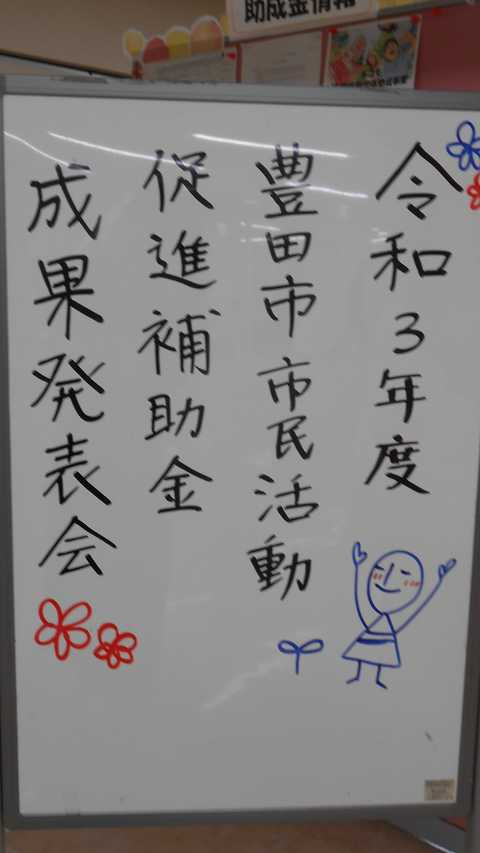 助成金情報
令和3年度
豊田市市民活動
促進補助金
成果発表会